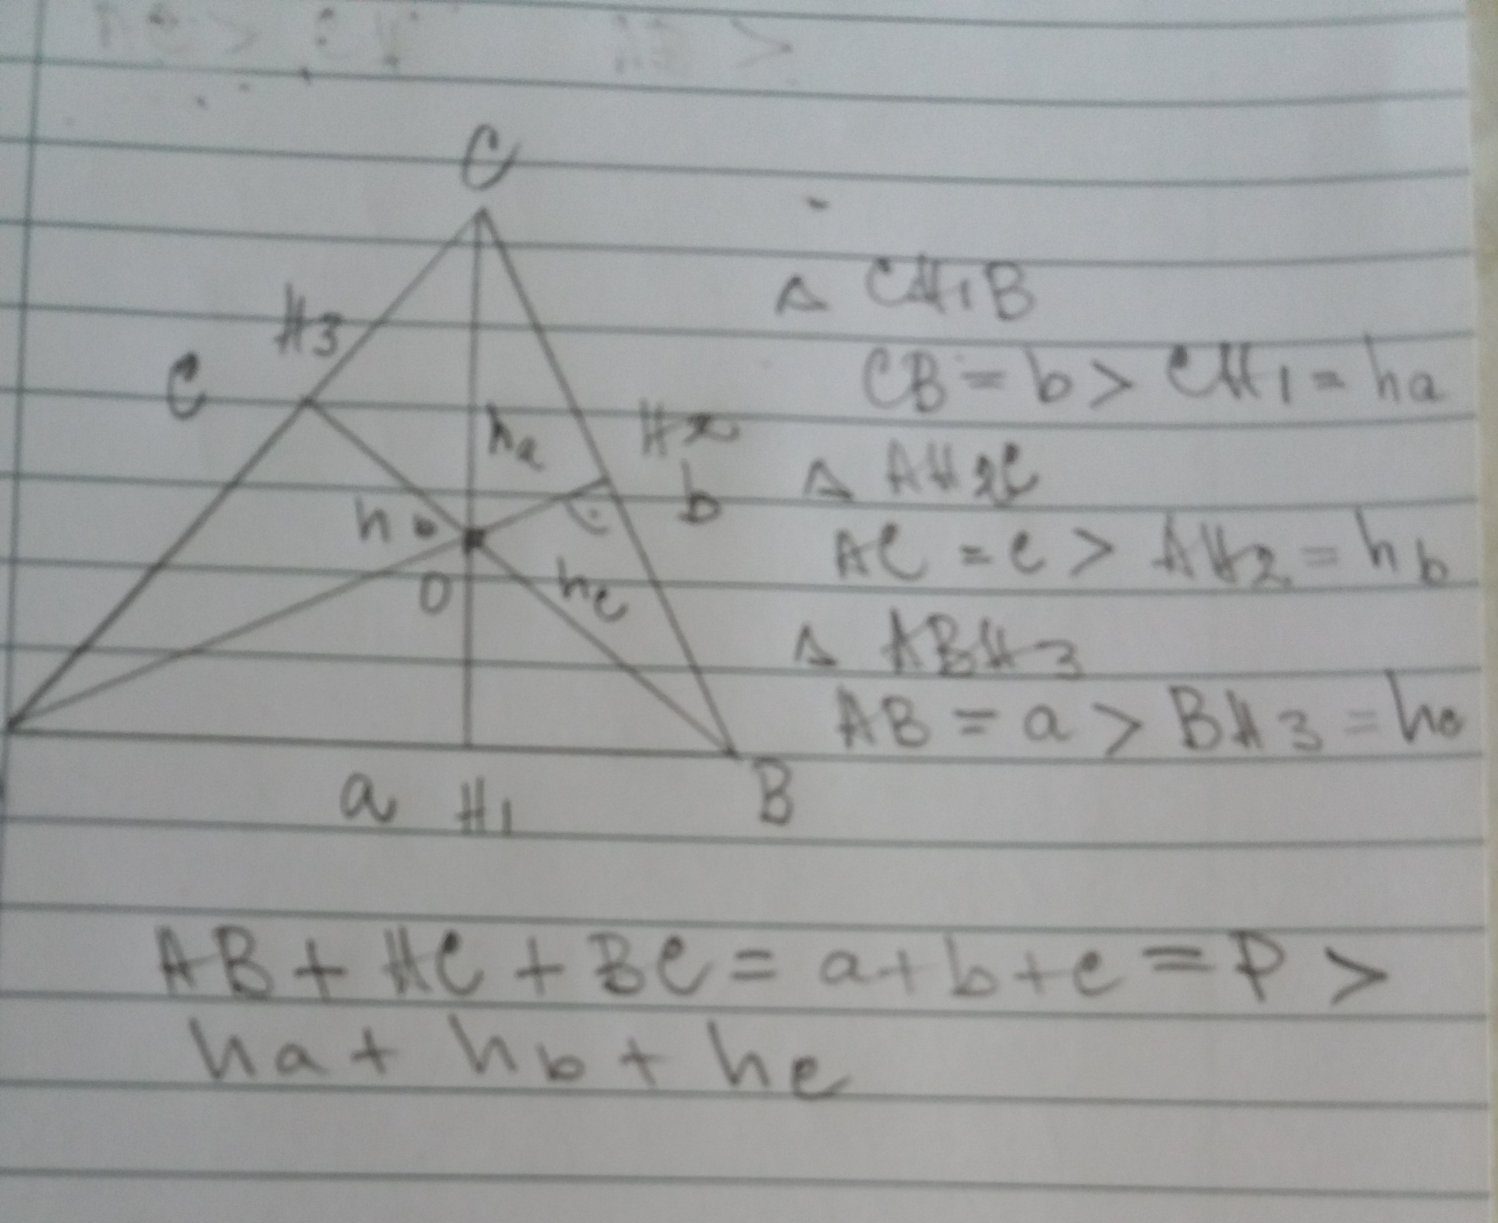 C
H3
C
ha
H2
b
hb
O
hc
a H1
B
△ CH1B
CB = b > CH1 = ha
△ AH2C
AC = c > AH2 = hb
△ ABH3
AB = a > BH3 = hc
AB + AC + BC = a+b+c = P >
ha + hb + hc